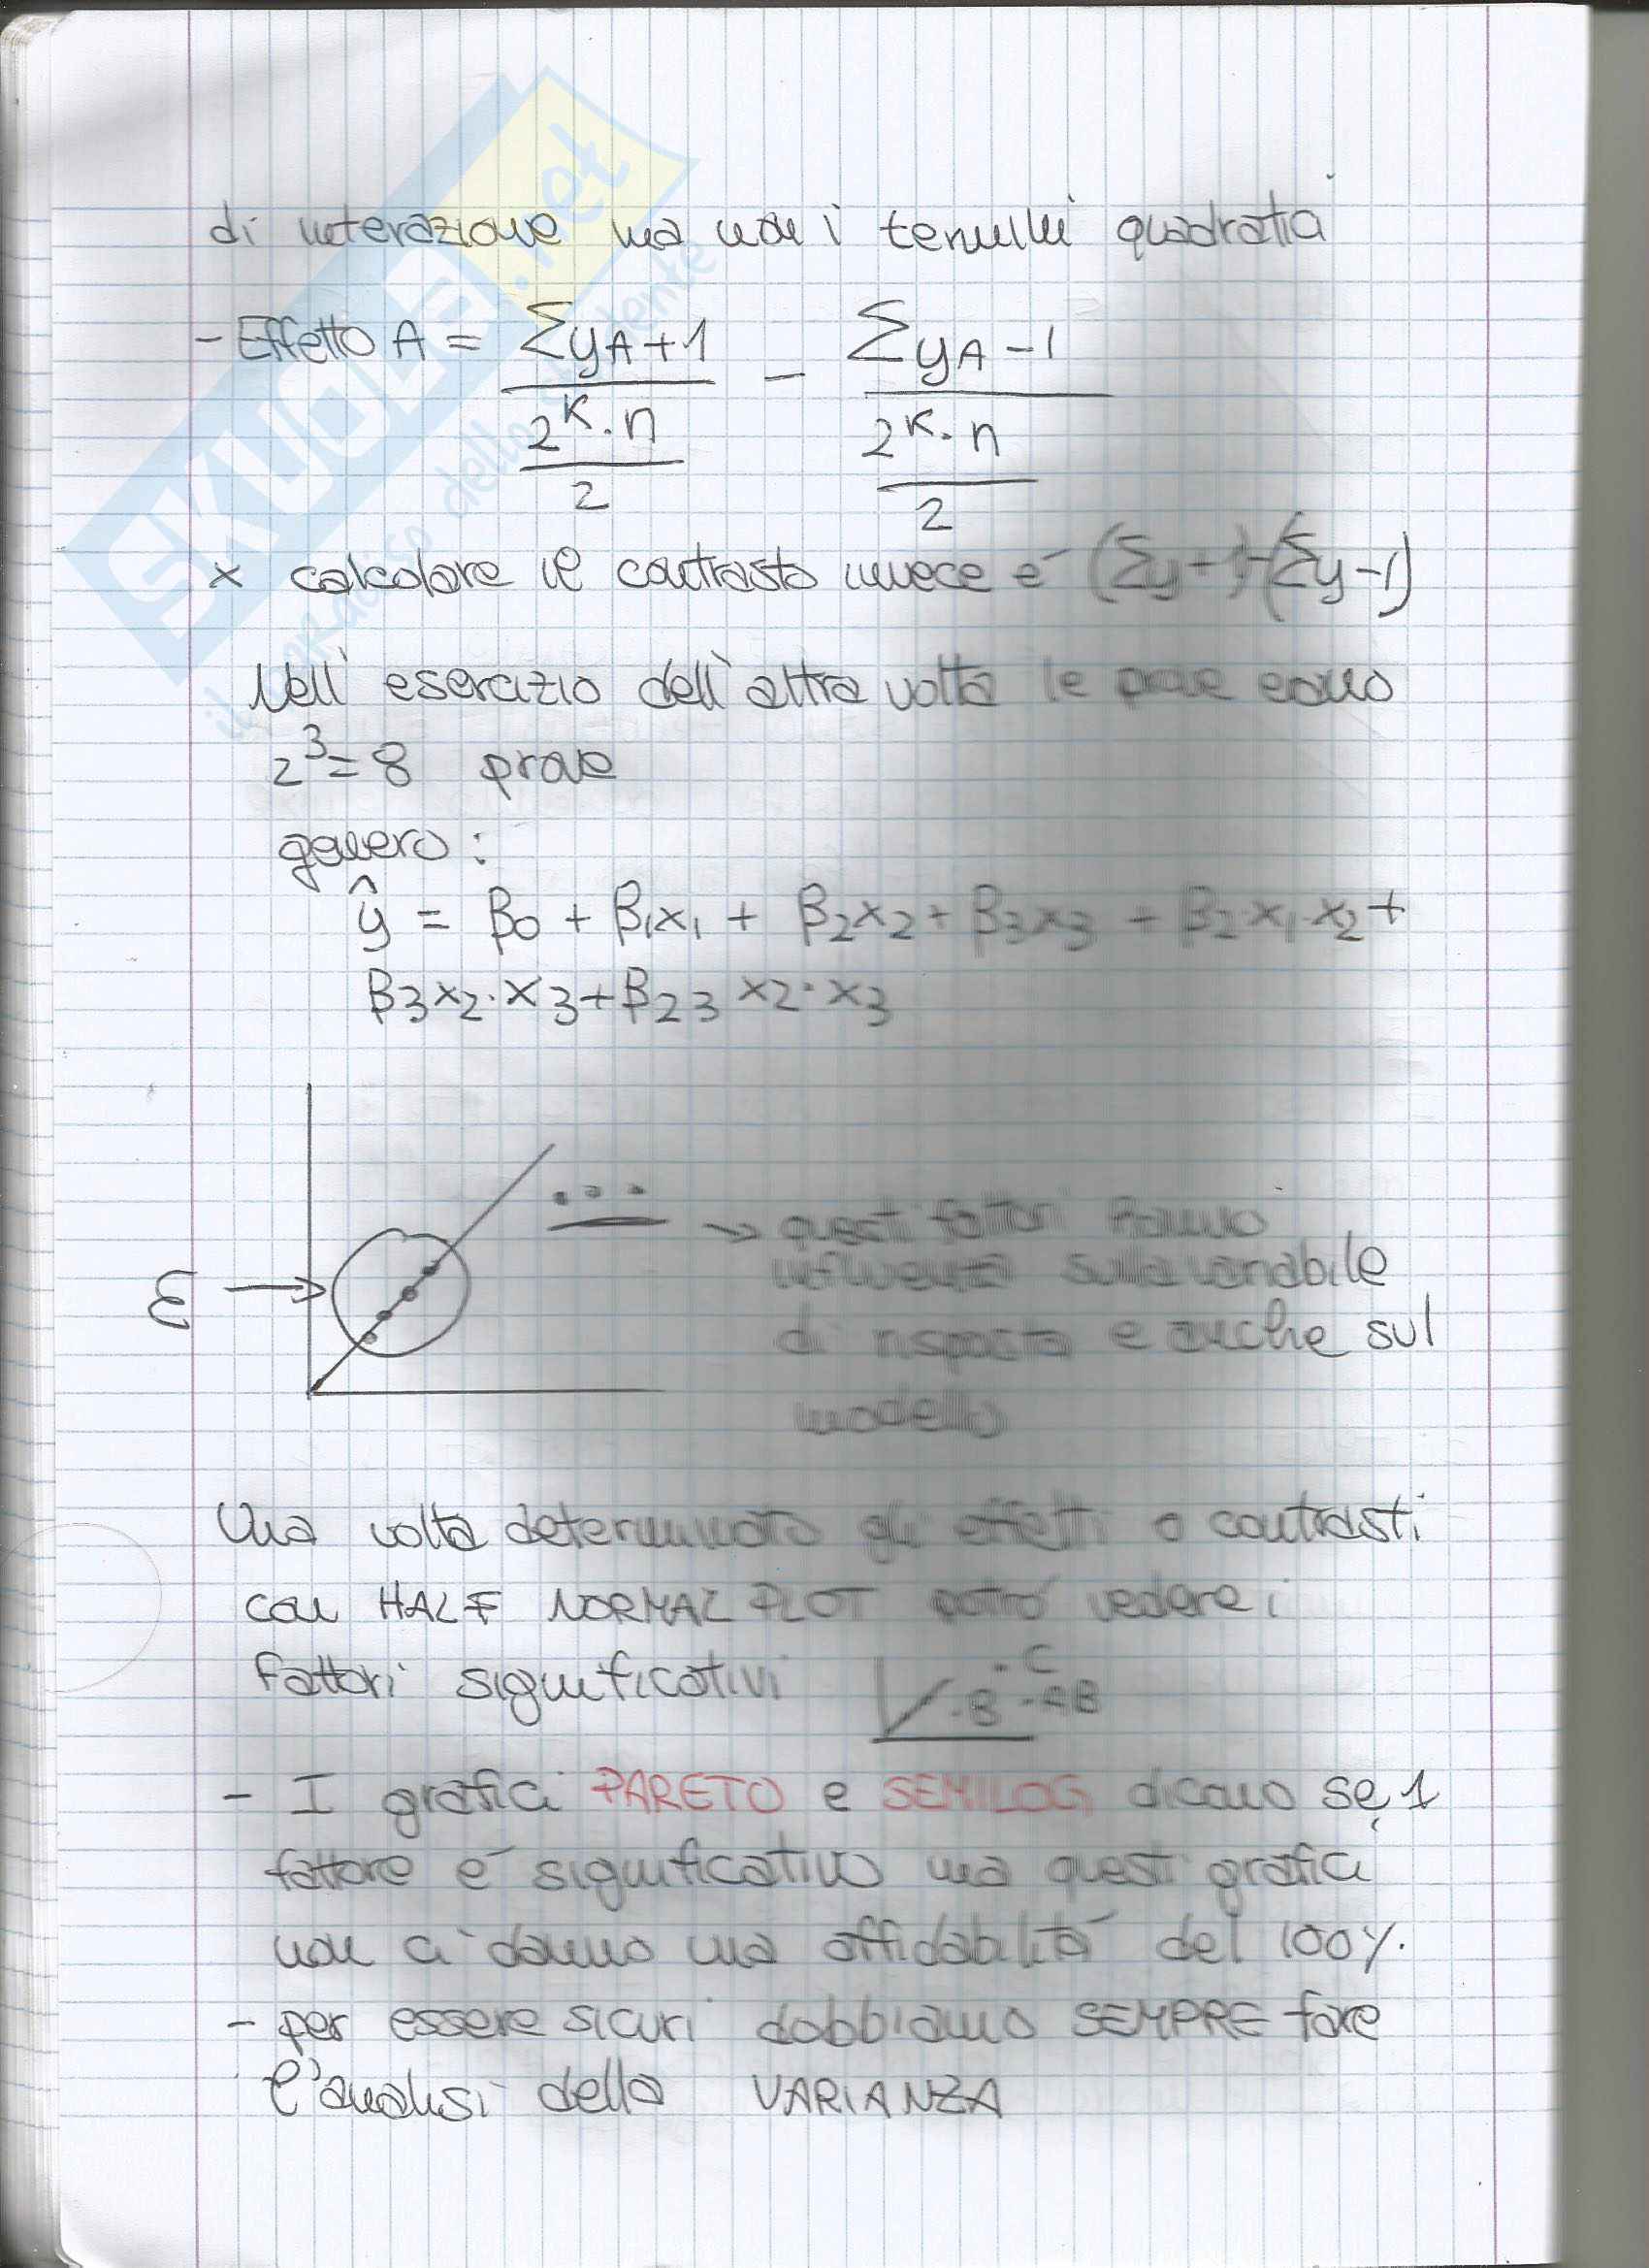 di interazione ma non i termini quadratici
- Effetto A = ΣyA+1 / (2^K · n / 2) - ΣyA-1 / (2^K · n / 2)
x calcolare il contrasto invece è (Σy+1)-(Σy-1)
Nell'esercizio dell'altra volta le prove erano
2^3=8 prove
genero:
ŷ = β0 + β1x1 + β2x2 + β3x3 + β2·x1·x2 +
β3x2·x3+β23 x2·x3
ε → ... → questi fattori hanno
influenza sulla variabile
di risposta e anche sul
modello
Una volta determinato gli effetti o contrasti
con HALF NORMAL PLOT potrò vedere i
fattori significativi ·B ·C ·AB
- I grafici PARETO e SEMILOG dicono se 1
fattore è significativo ma questi grafici
non ci danno una affidabilità del 100%.
- per essere sicuri dobbiamo SEMPRE fare
l'analisi della VARIANZA
SKUOLA.net
il paradiso dello studente